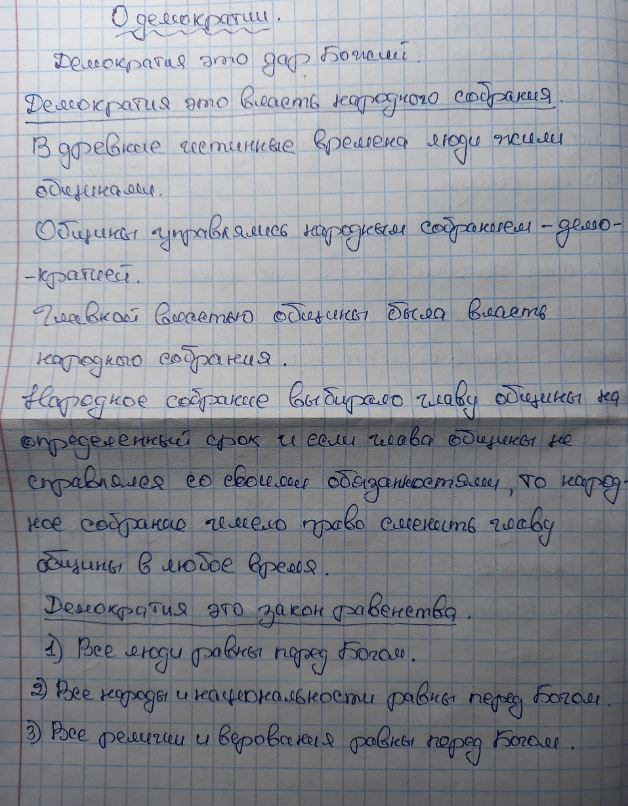 О демократии.
Демократия это дар Божий.
Демократия это власть народного собрания.
В древние истинные времена люди жили
общинами.
Общины управлялись народным собранием - демо-
-кратией.
Главной властью общины была власть
народного собрания.
Народное собрание выбирало главу общины на
определенный срок и если глава общины не
справлялся со своими обязанностями, то народ-
ное собрание имело право сменить главу
общины в любое время.
Демократия это закон равенства.
1) Все люди равны перед Богом.
2) Все народы и национальности равны перед Богом.
3) Все религии и верования равны перед Богом.